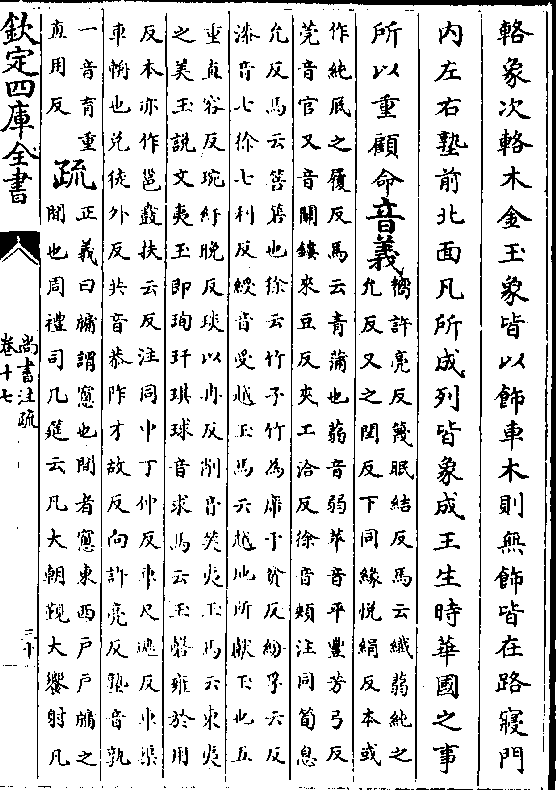 輅象次輅木金玉象皆以飾車木則無飾皆在路寢門
内左右塾前北面凡所成列皆象成王生時華國之事
所以重顧命音義
嚮許亮反篾眠結反馬云纖蒻純之
允反又之閏反下同緣悅絹反本或
作純厎之履反馬云青蒲也蒻音弱苹音平豐芳弓反
莞音官又音關鏤來豆反夾工洽反徐音頰注同筍息
允反馬云䈚箬也徐云竹子竹為席于貧反紛孚云反
漆音七徐七利反綬音受越玉馬云越地所獻玉也五
重直容反琬紆晚反琰以冉反削音笑夷玉馬云東夷
之美玉說文夷玉即珣玗琪球音求馬云玉磬雍於用
反本亦作邕虣扶云反注同中丁仲反車尺遮反車渠
車輞也兌徒外反共音恭阼才故反向許亮反塾音孰
一音育重
直用反
疏
正義曰牖謂窻也間者窻東西戶戶牖之
間也周禮司几筵云凡大朝覲大饗射凡
欽定四庫全書
尚書注疏
卷十七
三十